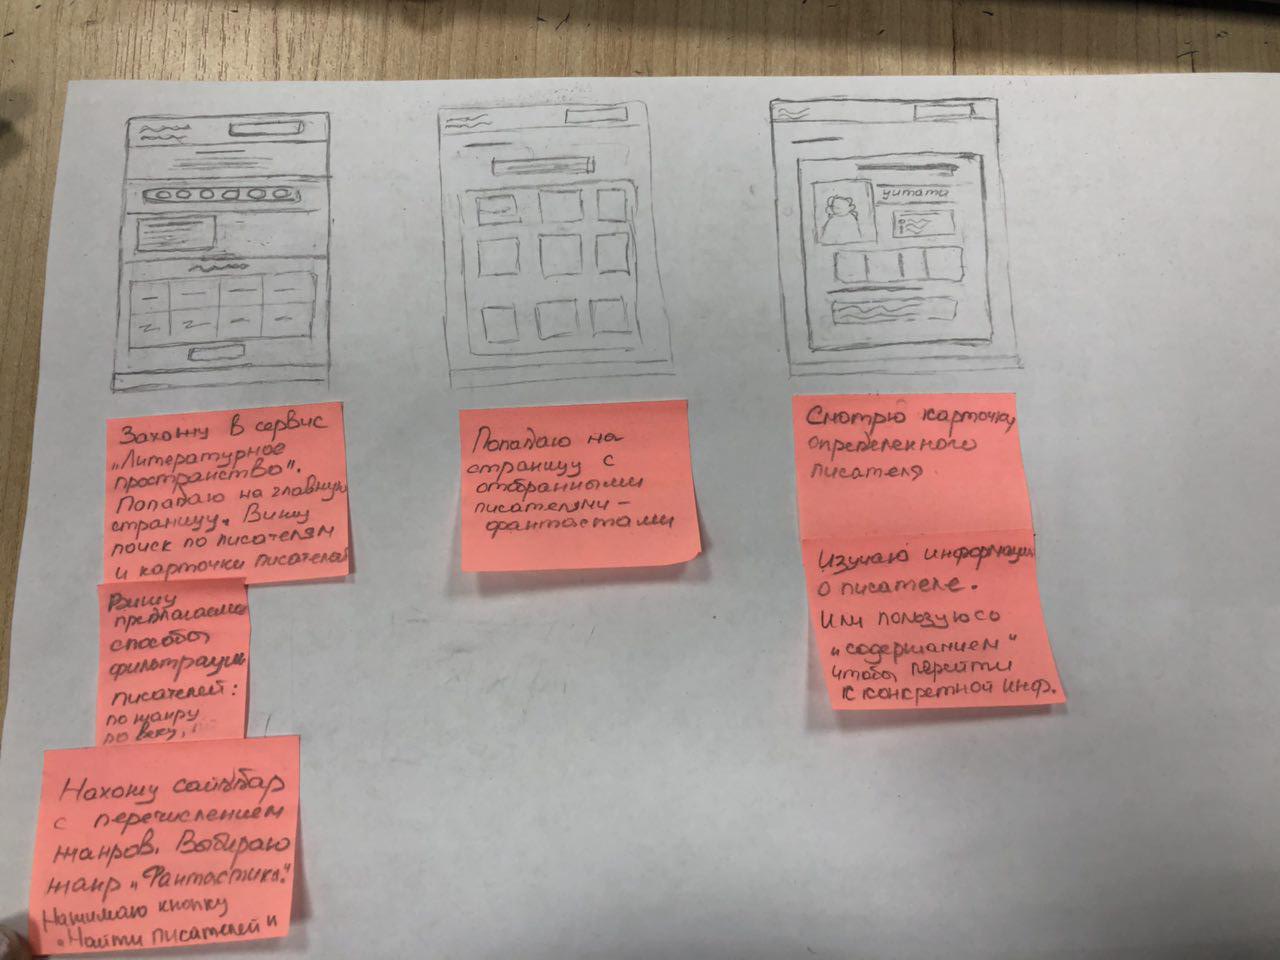 цитаты
Захожу в сервис
„Литературное
пространство".
Попадаю на главную
страницу. Вижу
поиск по писателям
и карточки писателей
Вижу
предлагаемые
способы
фильтрации
писателей:
по жанру
по веку,
Нахожу сайдбар
с перечислением
жанров. Выбираю
жанр „Фантастика."
Нажимаю кнопку
„Найти писателей"
Попадаю на
страницу с
отобранными
писателями-
фантастами
Смотрю карточку
определенного
писателя
Изучаю информацию
о писателе.
Или пользуюсь
„содержанием"
чтобы перейти
к конкретной инф.